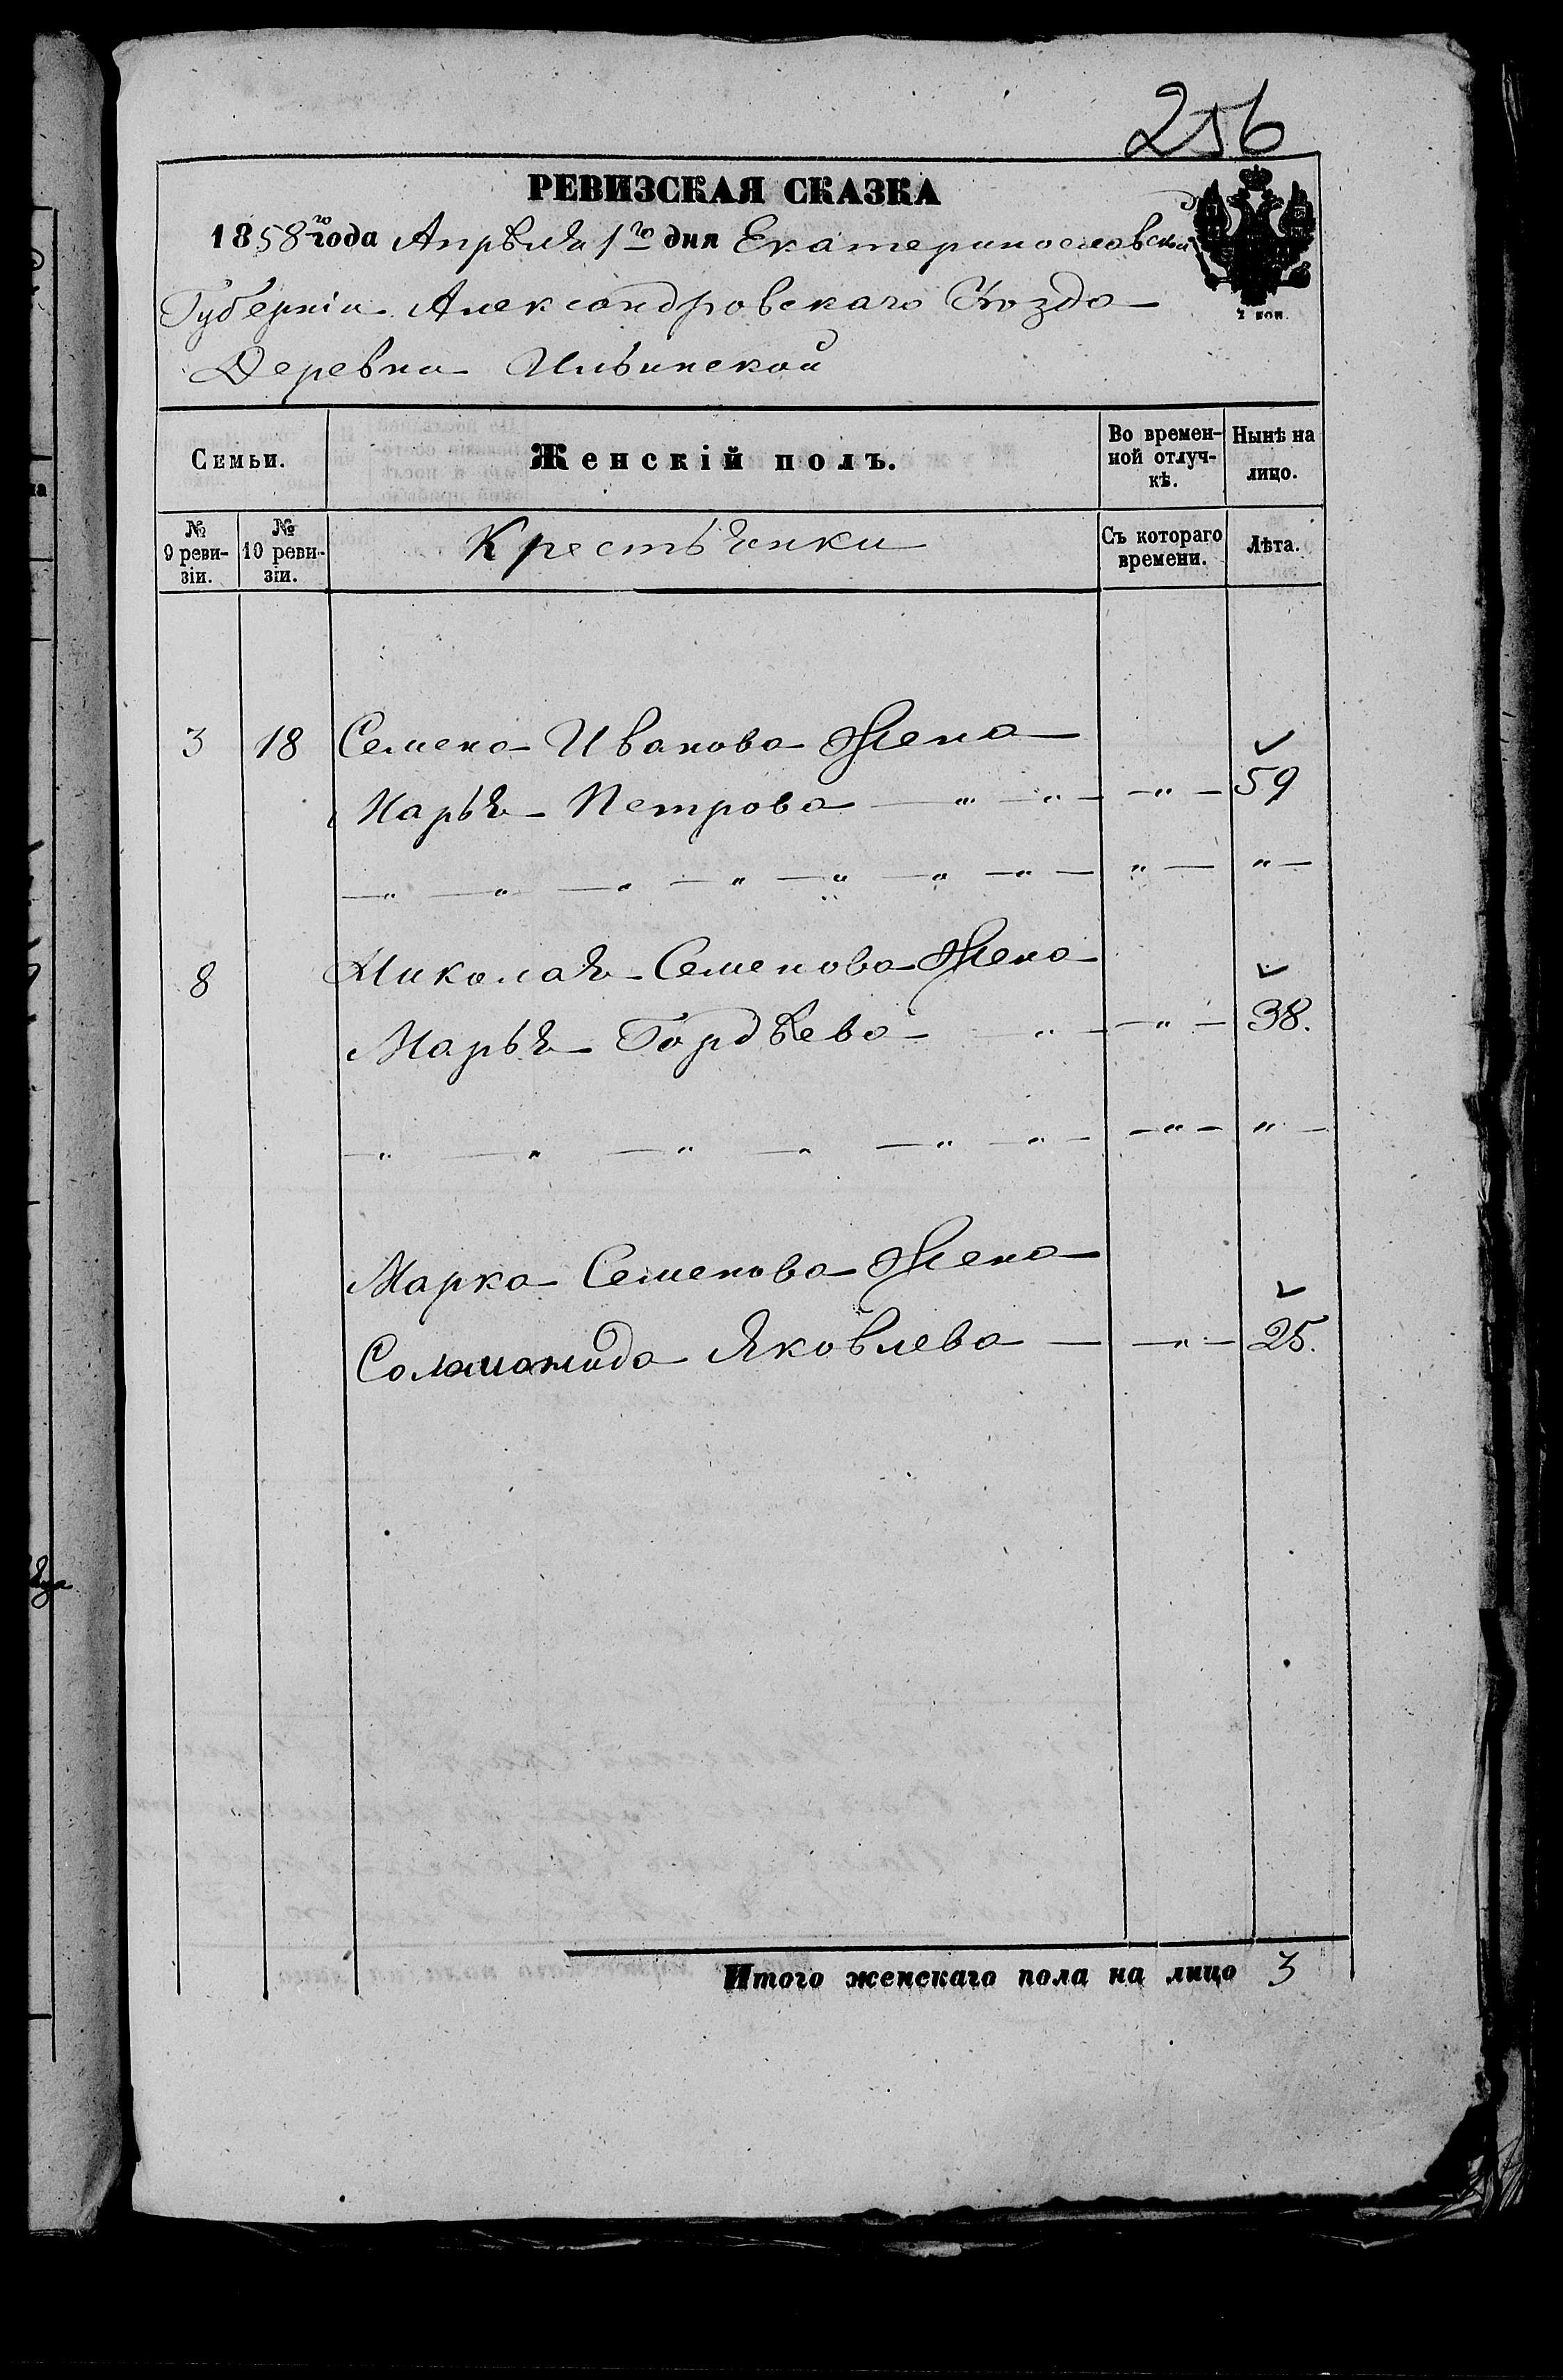 256
РЕВИЗСКАЯ СКАЗКА
1858го года Апрѣля 1го дня Екатеринославской
Губерніи Александровскаго Уѣзда
Деревни Ильинской
2 коп.
Семьи.
Женскій полъ.
Во времен-
ной отлуч-
кѣ.
Нынѣ на
лицо.
№
9 реви-
зіи.
№
10 реви-
зіи.
Крестьянки
Съ котораго
времени.
Лѣта.
3 18 Семена Иванова Жена
Марья Петрова — " — " — — " — 59
— " — " — " — " — " — " — " — " — " —
8 Николая Семенова Жена
Марья Гордѣева — " — — " — 38.
— " — " — " — " — " — " — — " — " —
Марка Семенова Жена
Соломонида Яковлева — — " — 25.
Итого женскаго пола на лицо 3